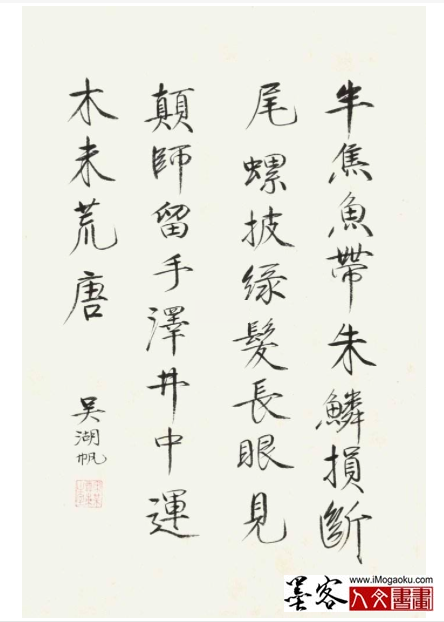 半焦魚帶朱鱗損斷
尾螺披綠髮長眼見
顛師留手澤井中運
木未荒唐
吳湖帆
www.iMogaoku.com
墨客
人文書畫